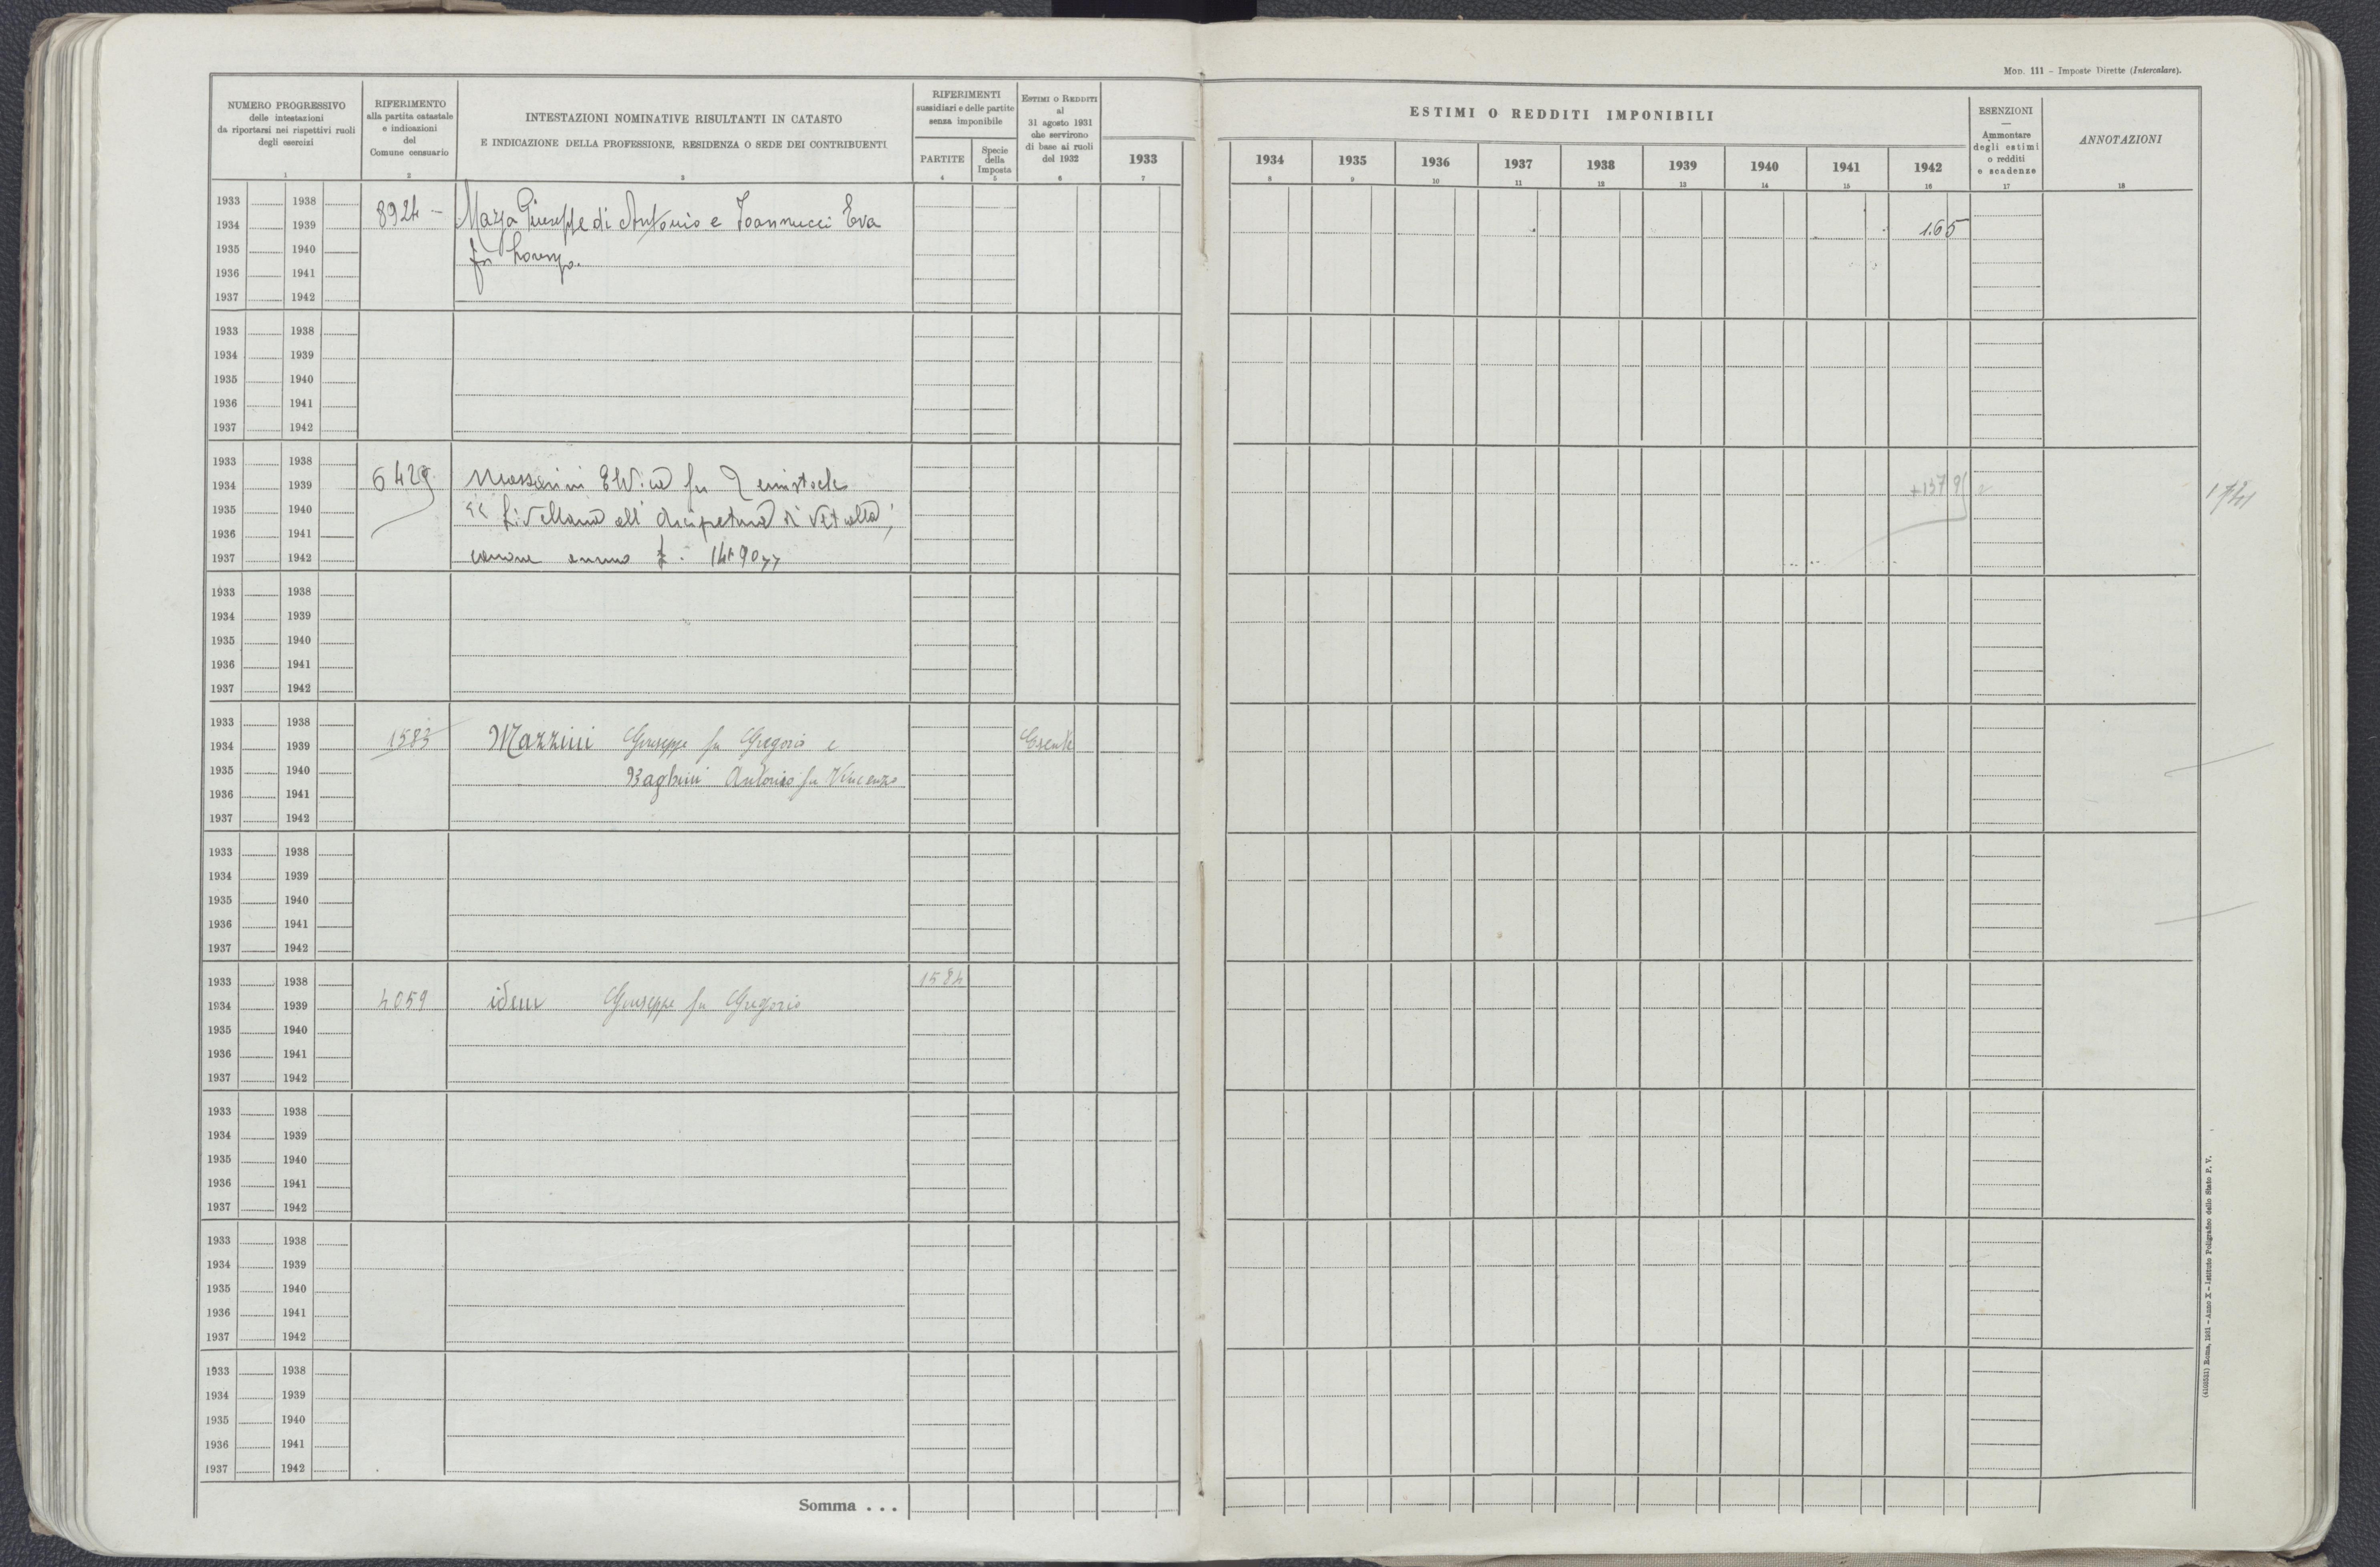 MOD. 111 – Imposte Dirette (Intercalare).
NUMERO PROGRESSIVO
delle intestazioni
da riportarsi nei rispettivi ruoli
degli esercizi
1
RIFERIMENTO
alla partita catastale
e indicazioni
del
Comune censuario
2
INTESTAZIONI NOMINATIVE RISULTANTI IN CATASTO
E INDICAZIONE DELLA PROFESSIONE, RESIDENZA O SEDE DEI CONTRIBUENTI
3
RIFERIMENTI
sussidiari e delle partite
senza imponibile
PARTITE
4
Specie
della
Imposta
5
ESTIMI O REDDITI
al
31 agosto 1931
che servirono
di base ai ruoli
del 1932
6
1933
7
ESTIMI O REDDITI IMPONIBILI
1934 1935 1936 1937 1938 1939 1940 1941 1942
8 9 10 11 12 13 14 15 16
ESENZIONI
—
Ammontare
degli estimi
o redditi
e scadenze
17
ANNOTAZIONI
18
1933 1938
1934 1939 8924 – Mazza Giuseppe di Antonio e Ioannucci Eva 1.65
1935 1940 fu Lorenzo.
1936 1941
1937 1942
1933 1938
1934 1939
1935 1940
1936 1941
1937 1942
1933 1938
1934 1939 6429 fu
1935 1940 livellaria all'
1936 1941
1937 1942 canone annuo
1933 1938
1934 1939
1935 1940
1936 1941
1937 1942
1933 1938
1934 1939 1583 Mazzini Giuseppe fu Gregorio e Esente
1935 1940 Baghini Antonio fu Vincenzo
1936 1941
1937 1942
1933 1938
1934 1939
1935 1940
1936 1941
1937 1942
1933 1938 1584
1934 1939 4059 idem Giuseppe fu Gregorio
1935 1940
1936 1941
1937 1942
1933 1938
1934 1939
1935 1940
1936 1941
1937 1942
1933 1938
1934 1939
1935 1940
1936 1941
1937 1942
1933 1938
1934 1939
1935 1940
1936 1941
1937 1942
Somma . . .
(4103531) Roma, 1931 – Anno X – Istituto Poligrafico dello Stato P. V.